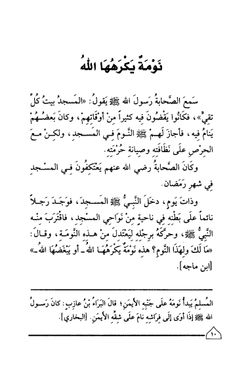 نَوْمَةٌ يَكْرَهُهَا اللهُ
سَمِعَ الصَّحَابَةُ رَسُولَ اللهِ ﷺ يَقُولُ: «المَسجدُ بيتُ كُلِّ
تقيٍّ»، فَكَانُوا يَقْضُونَ فِيهِ كثيراً مِنْ أَوْقَاتِهِمْ، وَكانَ بَعضُهُمْ
يَنامُ فِيهِ، فأجازَ لَهُمْ ﷺ النَّومَ فـي المَسـجدِ، ولكِـنْ مـعَ
الحِرْصِ عَلَى نَظَافَتِهِ وصِيانَةِ حُرْمَتِهِ.
وكَانَ الصَّحابةُ رضي الله عنهم يَعْتَكِفُونَ فـي المَسْجِدِ
فِي شهرِ رَمَضان.
وذاتَ يَومٍ، دخلَ النَّبِيُّ ﷺ المَسـجِدَ، فوَجَـدَ رَجـلاً
نائماً عَلَى بَطْنِهِ فِي ناحيةٍ مِنْ نَوَاحِي المَسجْدِ، فاقْتَرَبَ مِنْـه
النَّبِيُّ ﷺ، وحرَّكَهُ بِرِجْلِهِ لِيَعْتَدِلَ مِنْ هـذِهِ النَّومَـةِ، وقـالَ:
«مَا لَكَ وَلِهَذَا النَّومِ؟ هذِهِ نَوْمَةٌ يَكْرَهُهَا اللهُ ـ أو يبْغُضُهَا اللهُ ـ»
[ابن ماجه].
المُسلِمُ يَبدأُ نَومَهُ عَلَى جَنْبِهِ الأيمَنِ؛ قالَ البَرَاءُ بْنُ عازِبٍ: كانَ رَسولُ
اللهِ ﷺ إِذَا أوَى إِلَى فِرَاشِهِ نَامَ عَلَى شِقِّهِ الأَيْمَنِ. [البخاري].
١٠